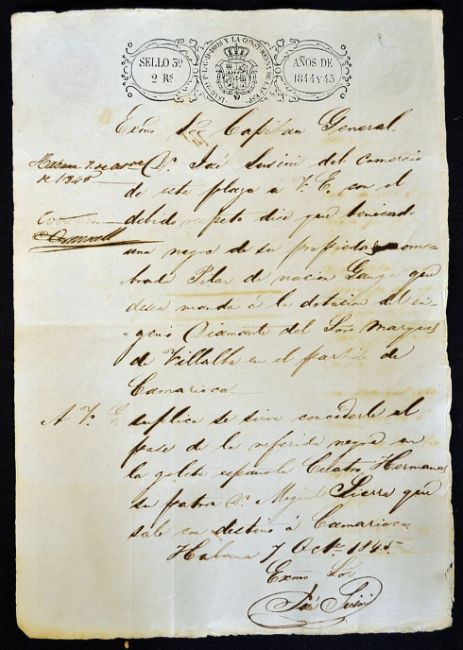 SELLO 3º
2 Rs
AÑOS DE
1844 y 45
Exmo Sor Capitan General
de 1845
Dn José Susini del comercio
de esta plaza a V. E. con el
debido respeto dice que teniendo
una negra de su propiedad nom-
brada Pilar de nacion Ganga que
desea mandar á la dotacion del in-
genio Diamante del Sor Marques
de Villalba en el partido de
Camarioca
A V. E. suplica se sirva concederle el
pase de la referida negra en
la goleta española Cuatro Hermanos
su patron Dn Miguel Sierra que
sale con destino á Camarioca
Habana 7 Octe 1845
Exmo Sor
José Susini